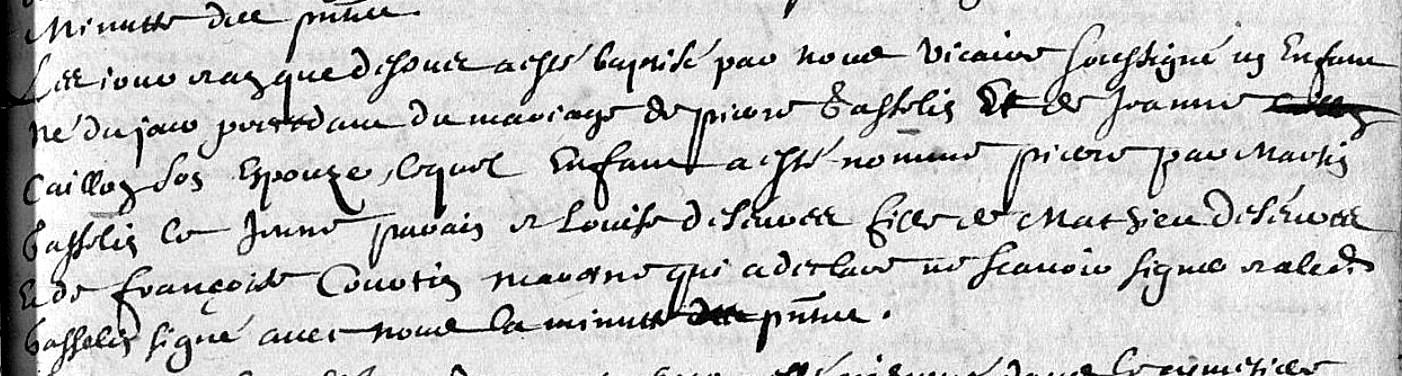 Minutte des pñtes.
Les jour et an que dessus a esté baptisé par nous vicaire soubsigné un Enfant
né du jour precedant du mariage de pierre Gasselin Et de Jeanne
Caillon son Espouze, lequel Enfant a esté nommé pierre par Martin
Gasselin le Jeune parain et Louise fille de Mathieu
Et de françoise Courtin marene qui a declaré ne scavoir signer et a led.
Gasselin signé avec nous la minutte pñtes.
esté dans le cymetiere